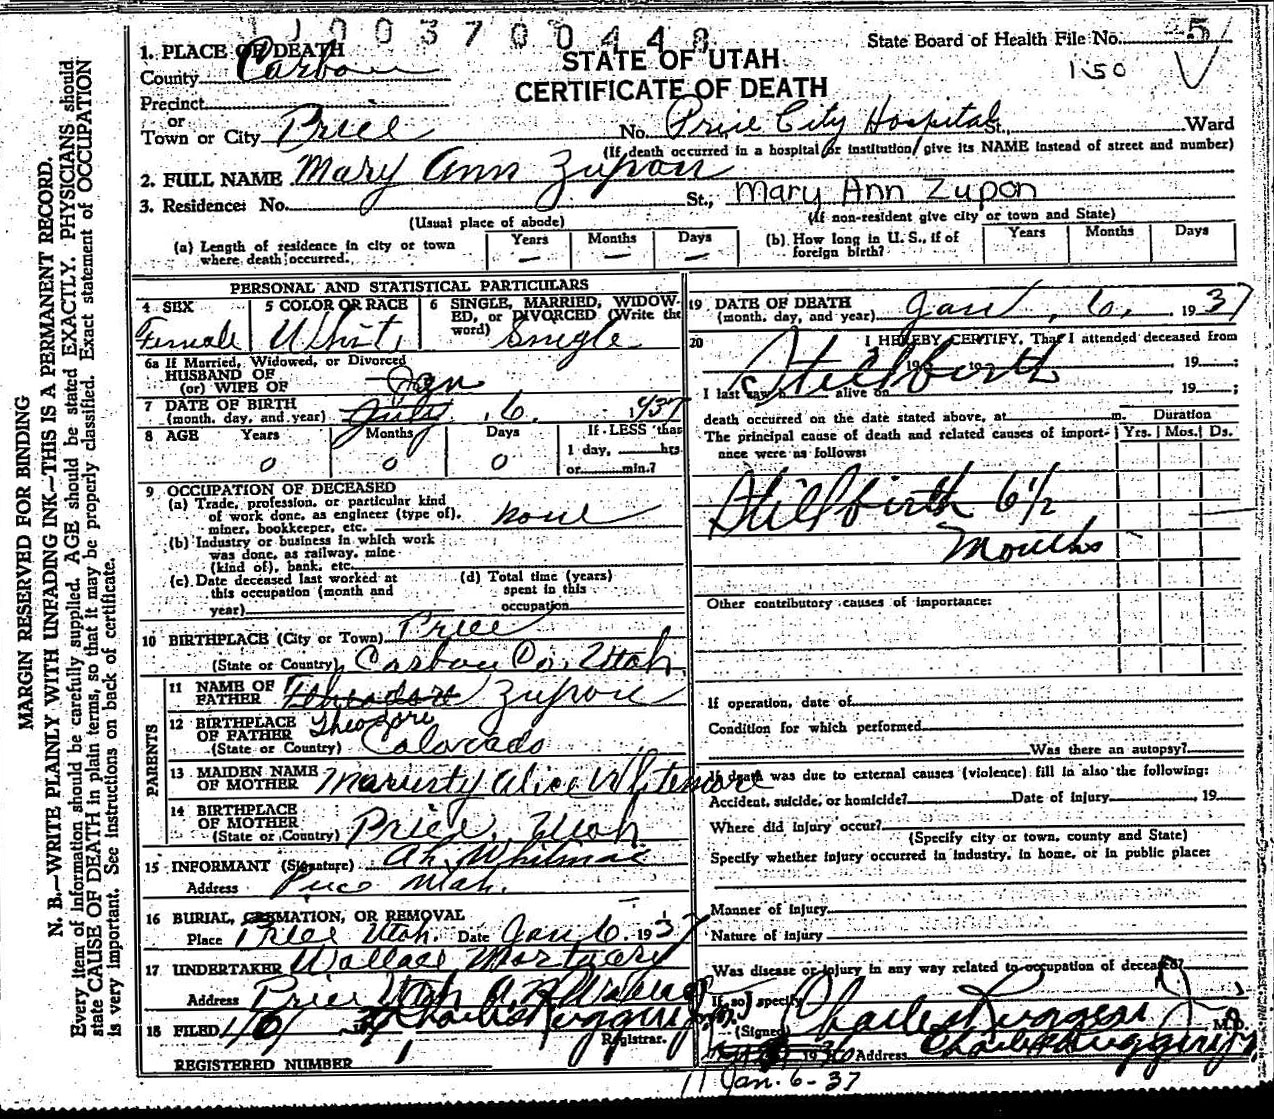 1003700448
1. PLACE OF DEATH
County Carbon
STATE OF UTAH
CERTIFICATE OF DEATH
State Board of Health File No. 5
150
Precinct
or
Town or City Price No. Price City Hospital St., Ward
(If death occurred in a hospital or institution, give its NAME instead of street and number)
2. FULL NAME Mary Ann Zupon
3. Residence: No. St., Mary Ann Zupon
(Usual place of abode) (If non-resident give city or town and State)
(a) Length of residence in city or town where death occurred. Years — Months — Days —
(b) How long in U. S., if of foreign birth? Years Months Days
PERSONAL AND STATISTICAL PARTICULARS
4 SEX Female
5 COLOR OR RACE White
6 SINGLE, MARRIED, WIDOWED, or DIVORCED (Write the word) Single
6a If Married, Widowed, or Divorced
HUSBAND OF
(or) WIFE OF
Jan
7 DATE OF BIRTH
(month, day, and year) July 6, 1937
8 AGE Years 0 Months 0 Days 0
If LESS than
1 day, hrs.
or min.?
9 OCCUPATION OF DECEASED
(a) Trade, profession, or particular kind
of work done, as engineer (type of),
miner, bookkeeper, etc. none
(b) Industry or business in which work
was done, as railway, mine
(kind of), bank, etc.
(c) Date deceased last worked at
this occupation (month and
year)
(d) Total time (years)
spent in this
occupation
10 BIRTHPLACE (City or Town) Price
(State or Country) Carbon Co., Utah
PARENTS
11 NAME OF FATHER Theodore Zupon
12 BIRTHPLACE OF FATHER Theodore
(State or Country) Colorado
13 MAIDEN NAME OF MOTHER Alice Whitmore
14 BIRTHPLACE OF MOTHER
(State or Country) Price, Utah
15 INFORMANT (Signature) Whitmore
Address Price Utah.
16 BURIAL, CREMATION, OR REMOVAL
Place Price Utah. Date Jan 6, 1937
17 UNDERTAKER Wallace Mortuary
Address Price Utah
18 FILED Charles Ruggeri Jr.
Registrar.
REGISTERED NUMBER 1
19 DATE OF DEATH
(month, day, and year) Jan 6, 1937
20 I HEREBY CERTIFY, That I attended deceased from
Stillbirth 19 ;
I last saw h alive on 19 ;
death occurred on the date stated above, at m. Duration
The principal cause of death and related causes of importance were as follows: Yrs. Mos. Ds.
Stillbirth 6 1/2
Months
Other contributory causes of importance:
If operation, date of
Condition for which performed
Was there an autopsy?
If death was due to external causes (violence) fill in also the following:
Accident, suicide, or homicide? Date of injury , 19
Where did injury occur?
(Specify city or town, county and State)
Specify whether injury occurred in industry, in home, or in public place:
Manner of injury
Nature of injury
Was disease or injury in any way related to occupation of deceased?
If so, specify
(Signed) Charles Ruggeri Jr. M.D.
Address Charles Ruggeri Jr.
Jan. 6-37
MARGIN RESERVED FOR BINDING
N. B.—WRITE PLAINLY WITH UNFADING INK—THIS IS A PERMANENT RECORD.
Every item of information should be carefully supplied. AGE should be stated EXACTLY. PHYSICIANS should
state CAUSE OF DEATH in plain terms, so that it may be properly classified. Exact statement of OCCUPATION
is very important. See instructions on back of certificate.